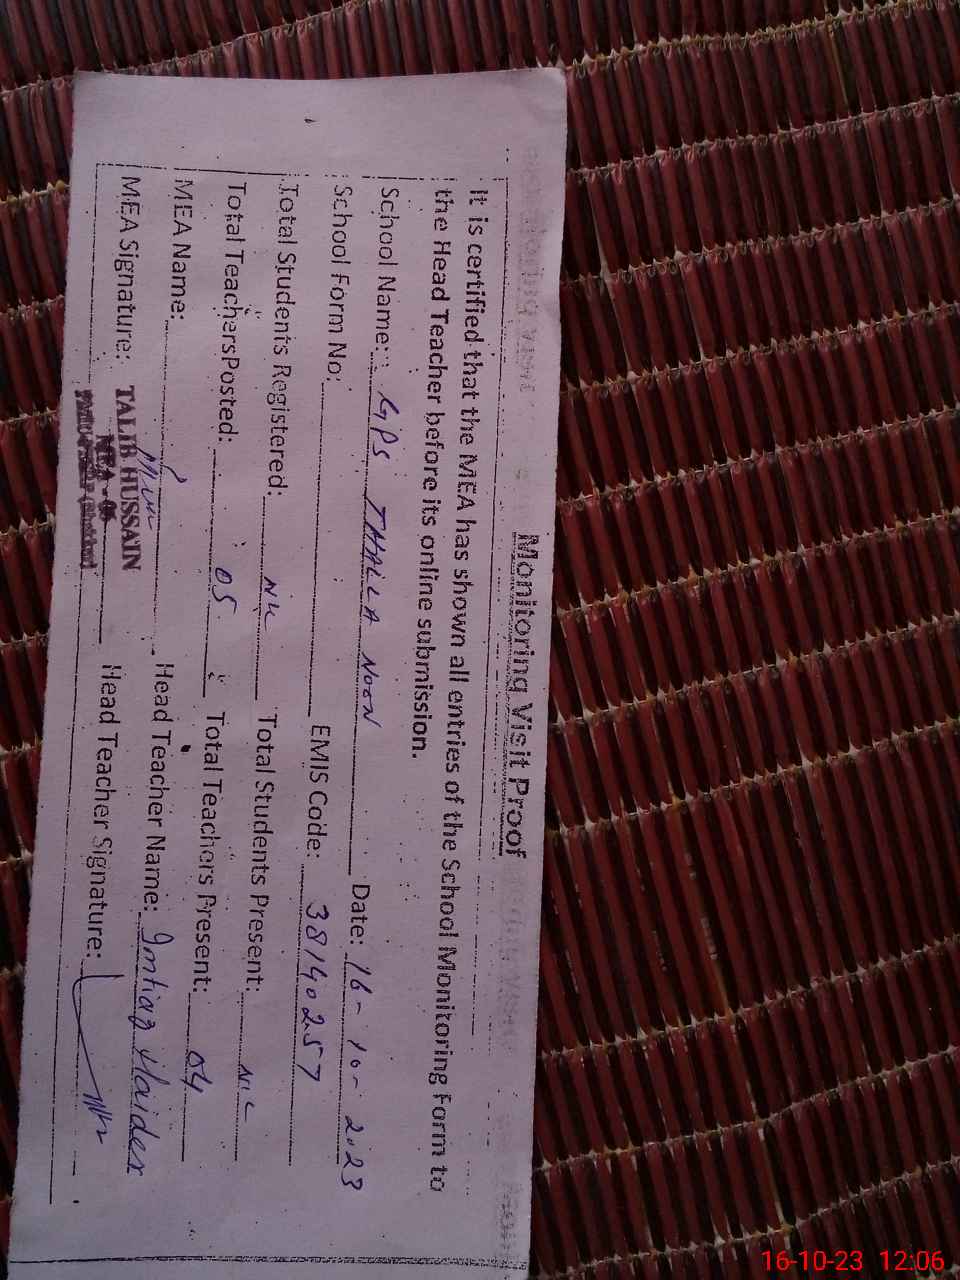 Monitoring Visit Proof
It is certified that the MEA has shown all entries of the School Monitoring Form to
the Head Teacher before its online submission.
School Name: GPS THALLA NOON Date: 16-10-2023
School Form No: EMIS Code: 38140257
Total Students Registered: NIL Total Students Present: NIL
Total Teachers Posted: 05 Total Teachers Present: 04
MEA Name: Head Teacher Name: Imtiaz Haider
MEA Signature: TALIB HUSSAIN Head Teacher Signature:
MEA - 06
16-10-23 12:06